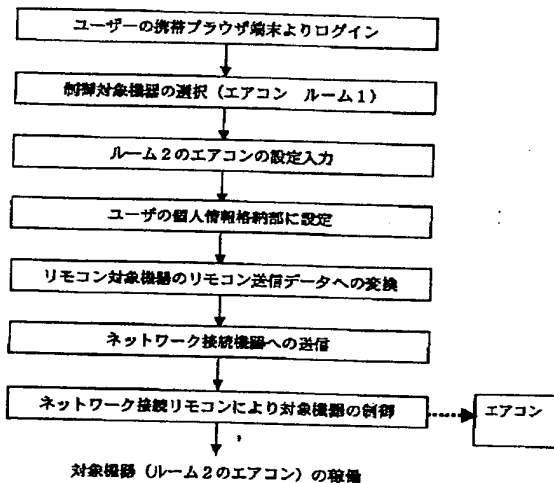 ユーザーの携帯ブラウザ端末よりログイン
制御対象機器の選択(エアコン ルーム1)
ルーム2のエアコンの設定入力
ユーザの個人情報格納部に設定
リモコン対象機器のリモコン送信データへの変換
ネットワーク接続機器への送信
ネットワーク接続リモコンにより対象機器の制御
エアコン
対象機器(ルーム2のエアコン)の稼働